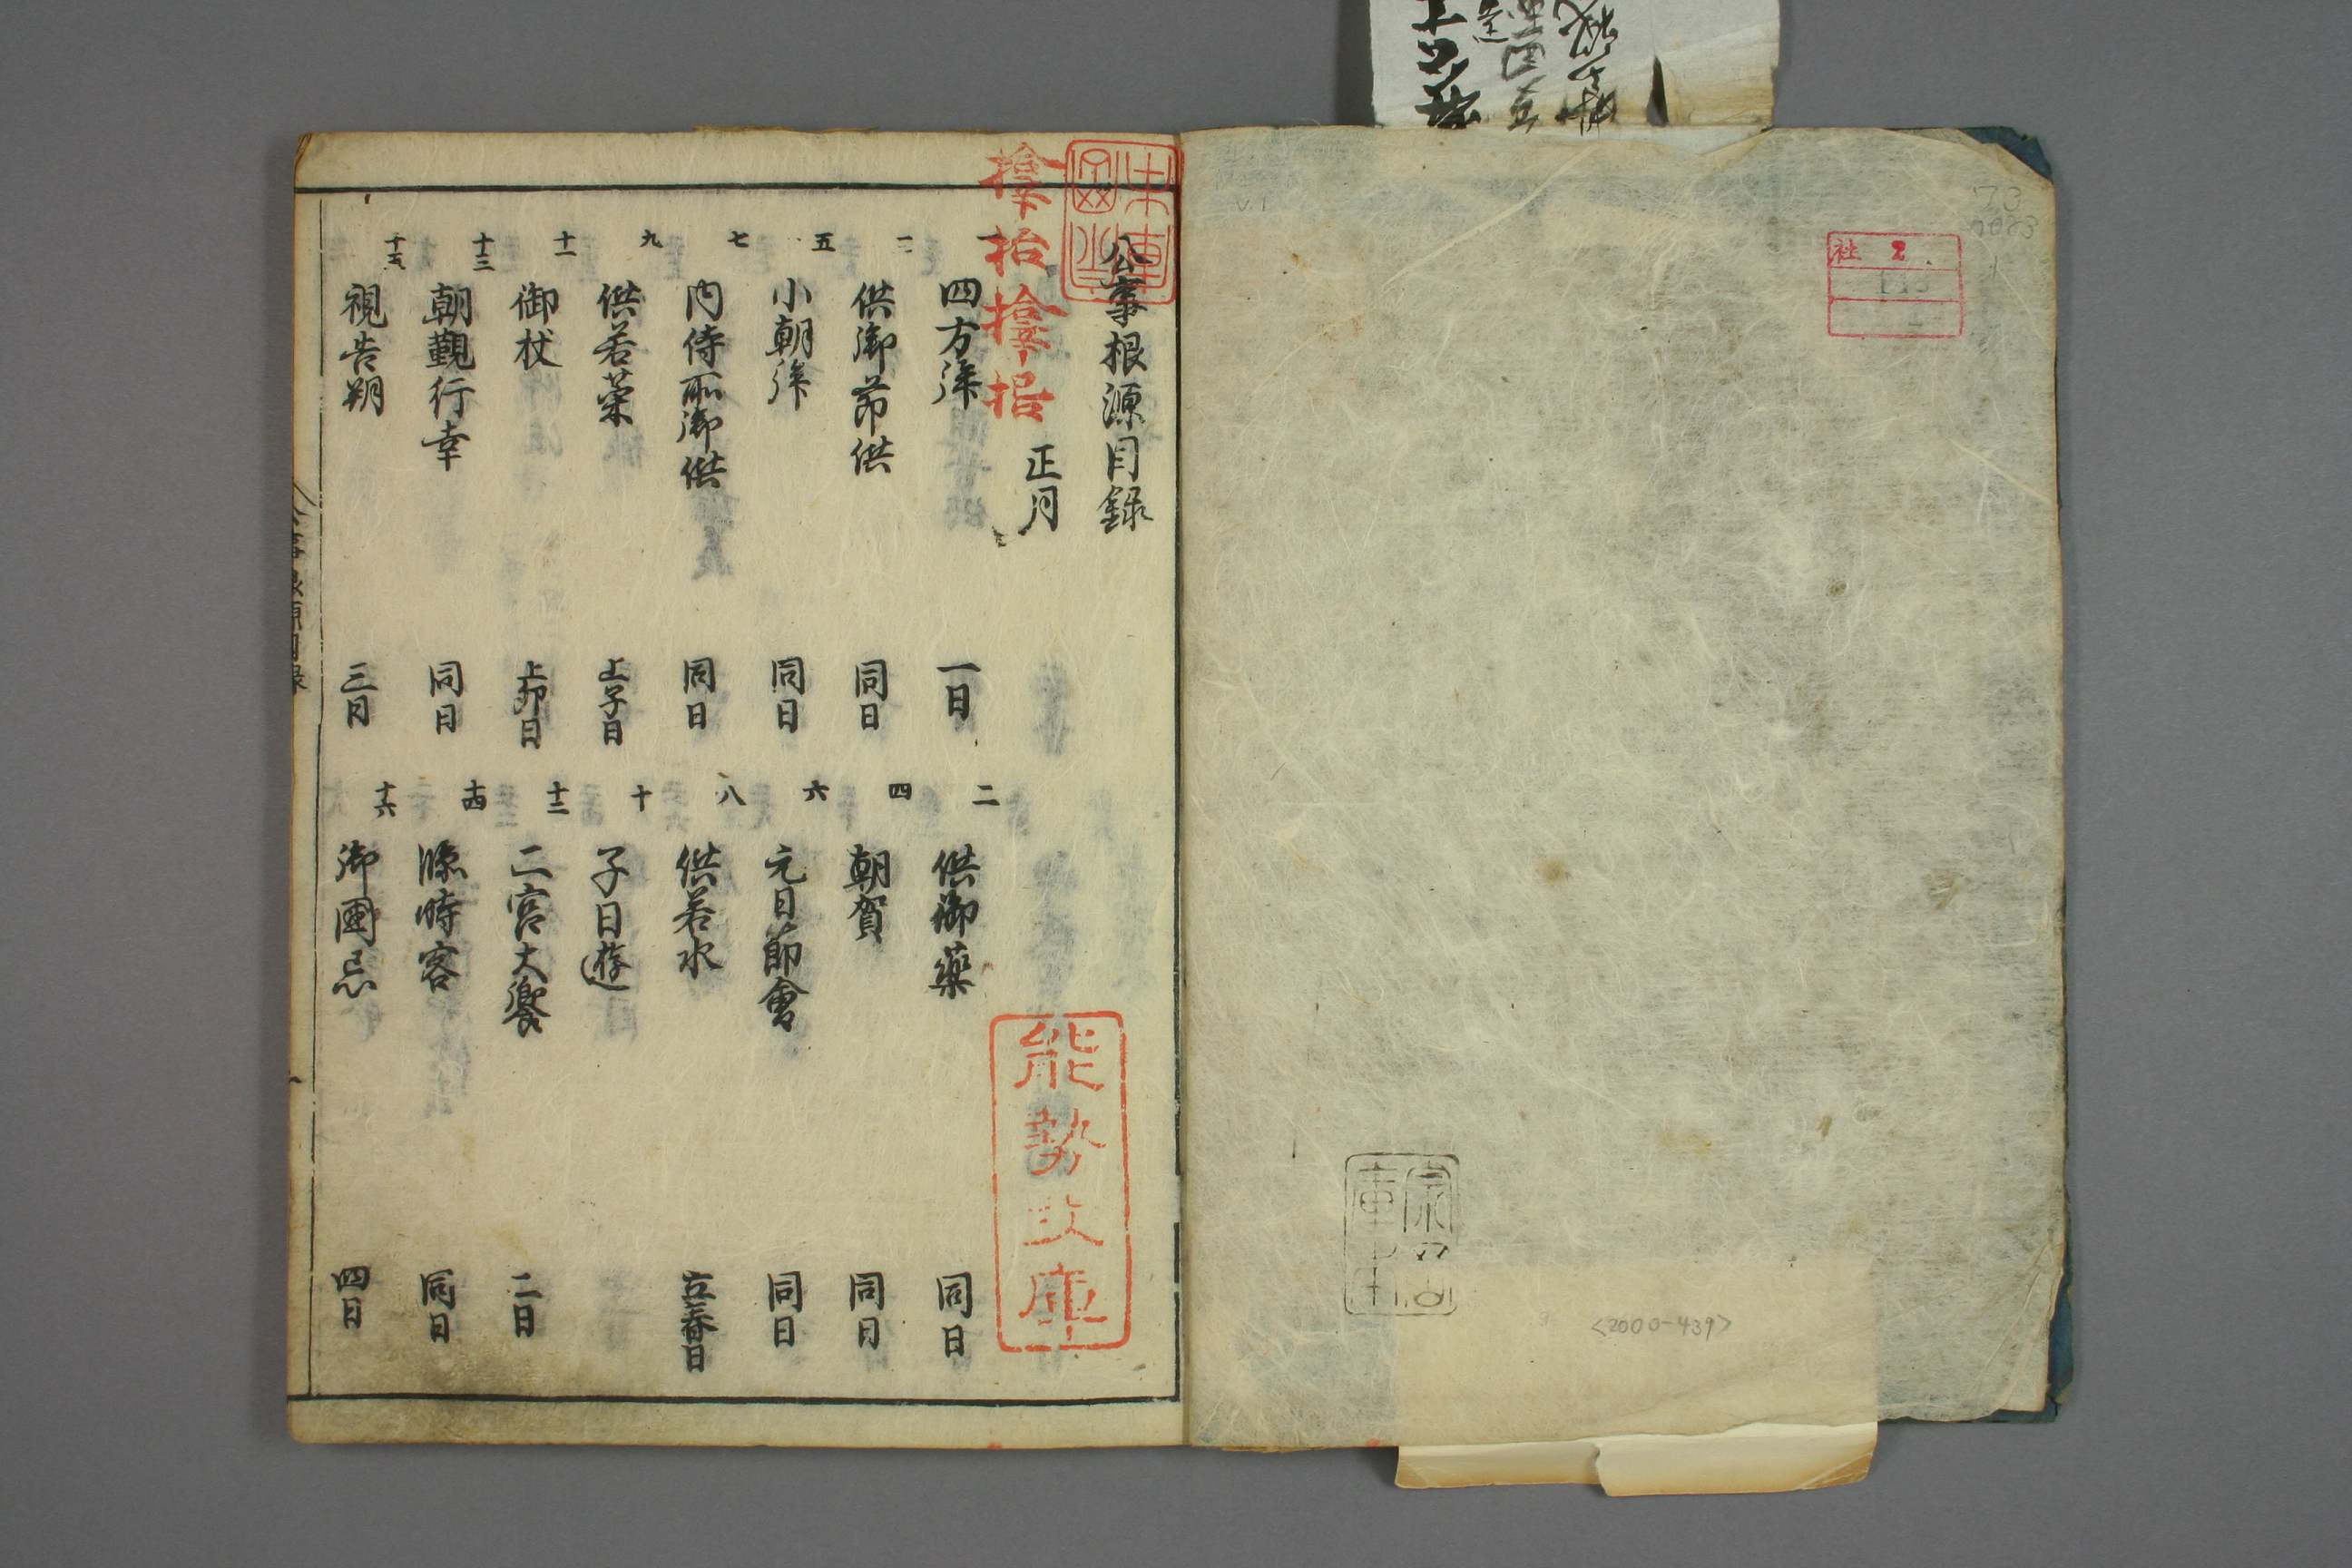 公事根源目録
正月
四方拝 一日
二 供御藥 同日
三 供御節供 同日
四 朝賀 同日
五 小朝拝 同日
六 元日節會 同日
七 内侍所御供 同日
八 供若水 立春日
九 供若菜 上子日
十 子日遊
十一 御杖 上卯日
十二 二宮大饗 二日
十三 朝覲行幸 同日
十四 臨時客 同日
十五 視告朔 三日
十六 御國忌 四日
能勢文庫
社 2
<2000-439>